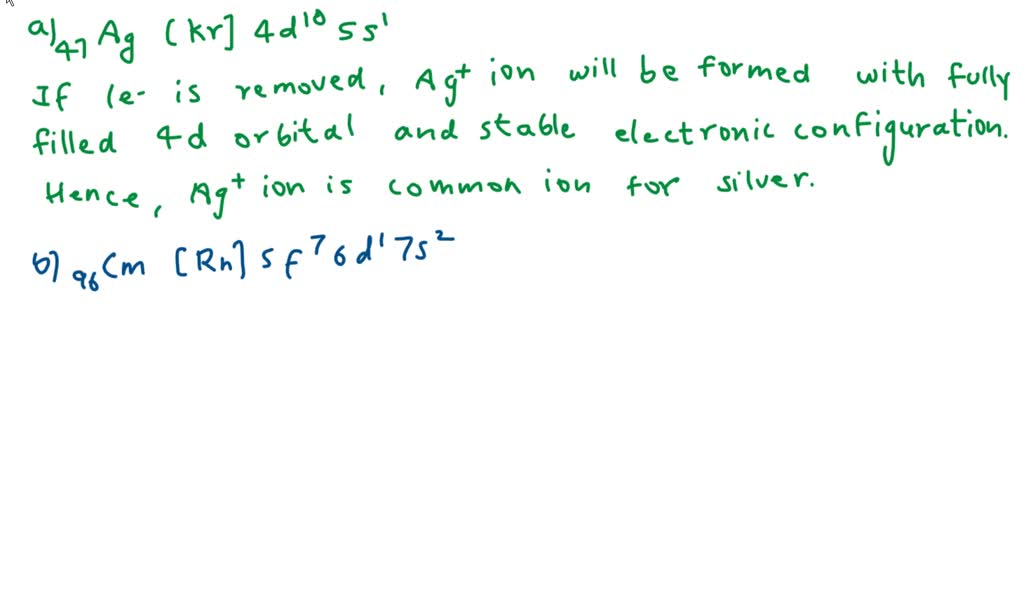 a) ₄₇Ag [Kr] 4d¹⁰ 5s¹
If 1e- is removed, Ag⁺ ion will be formed with fully
filled 4d orbital and stable electronic configuration.
Hence, Ag⁺ ion is common ion for silver.
b) ₉₆Cm [Rn] 5f⁷ 6d¹ 7s²